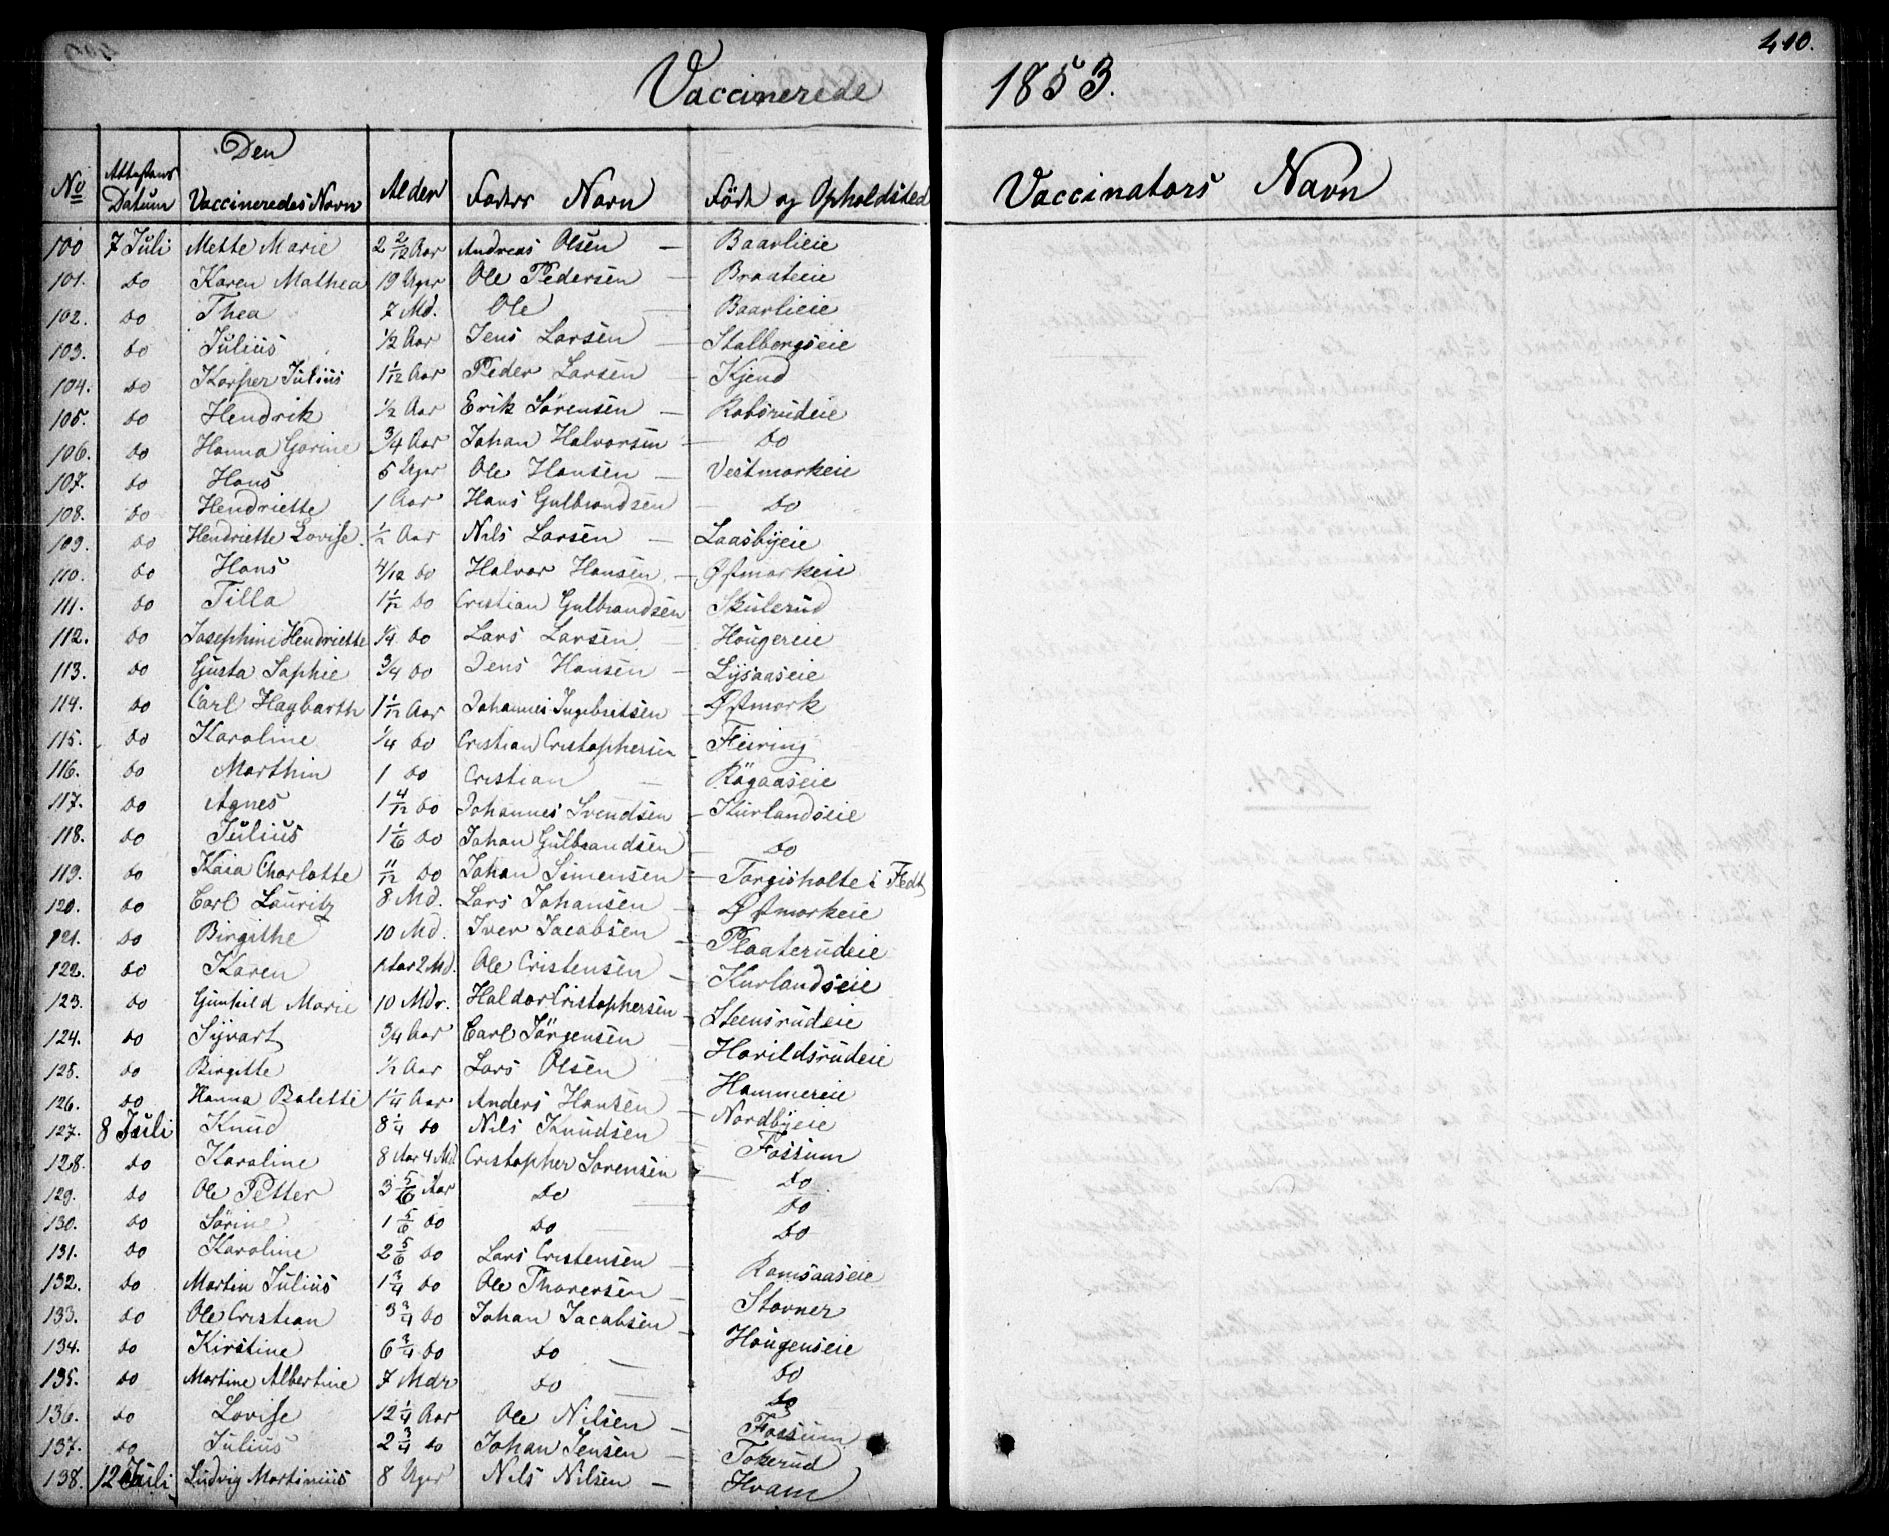 410.
Vaccinerede 1853.
No Attestens Datum Den Vaccineredes Navn Alder Faders Navn Föde og Opholdsted Vaccinators Navn
100 7 Juli Mette Marie 2 2/12 Aar Andreas Olsen — Baarlieie
101. do Karen Mathea 19 Uger Ole Pedersen Braateie
102. do Thea 7 Md. Ole — Baarlieie
103. do Julius 1/2 Aar Jens Larsen — Stalbergseie
104. do Kasper Julius 1 1/12 Aar Peder Larsen — Kjend
105. do Hendrik 1/2 Aar Erik Sörensen — Robsrudeie
106. do Hanna Gorine 3/4 Aar Johan Halvorsen — do
107. do Hans 5 Uger Ole Hansen — Vestmarkeie
108. do Hendriette 1 Aar Hans Gulbrandsen — do
109. do Hendriette Lovise. 1/2 Aar Nils Larsen — Laasbyeie
110. do Hans 4/12 do Halvor Hansen — Östmarkeie
111. do Tilla 1 1/12 do Cristian Gulbrandsen Skulerud
112. do Josephine Hendriette 1/4 do Lars Larsen — Hougereie
113. do Gusta Sophie 3/4 do Jens Hansen — Lysaaseie
114. do Carl Hagbarth 1 1/12 Aar Johannes Ingebretsen — Östmark
115. do Karoline 1/4 do Cristian Cristophersen — Feiring
116. do Marthin 1 do Cristian — Rögaaseie
117. do Agnes 1 4/12 do Johannes Svendsen — Kurlandseie
118. do Julius 1 1/6 do Johan Gulbrandsen do
119. do Kaia Charlotte 11/12 do Johan Simensen — Torgisholte i Fedt
120. do Carl Lauritz 8 Md. Lars Johansen — Östmarkeie
121. do Birgithe 10 Md. Iver Jacobsen — Plaaterudeie
122. do Karen 1 Aar 2 Md. Ole Cristensen — Kurlandseie
123. do Gunhild Marie 10 Mdr. Haldor Cristophersen — Steensrudeie
124. do Syvart 3/4 Aar Carl Jörgensen — Harildsrudeie
125. do Birgitte 1/2 Aar Lars Olsen — Hammereie
126. do Hanna Balette 1 1/4 Aar Anders Hansen — Nordbyeie
127. 8 Juli Knud 8 1/4 do Nils Knudsen — Fossum
128. do Karoline 8 Aar 4 Md Cristopher Sorensen — do
129. do Ole Petter 3 5/6 Aar do do
130. do Sörine 1 5/6 do do — do
131. do Karoline 2 5/6 do Lars Cristensen — Ramsaaseie
132. do Martin Julius 1 3/4 do Ole Thoversen — Stovner
133. do Ole Cristian 3 3/4 do Johan Jacobsen — Hougenseie
134. do Kirstine 6 3/4 do do — do
135. do Martine Albertine 7 Mdr do — do
136. do Lovise 12 1/4 Aar Ole Nilsen — Fossum
137. do Julius 2 3/4 do Johan Jensen — Tokerud
138. 12 Juli Ludvig Martinius 8 Uger Nils Nilsen — Hvam